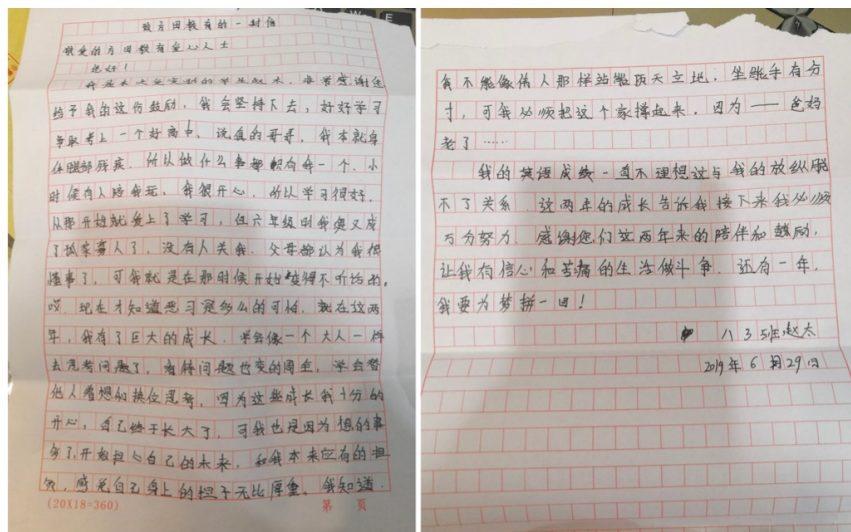 致方田教育的一封信
敬爱的方田教育爱心人士
您好！
给予我的这份鼓励，我会坚持下去，好好学习
争取考上一个好高中、说真的哥哥，我本就身
体腿部残疾．所以做什么事都
时候有人陪我玩、我很开心，所以学习很好．
从那开始就爱上了学习，但六年级时我便又成
了孤家寡人了，没有人关我．父母都认为我很
懂事了，可我就是在那时候开始变得不听话的，
哎．现在才知道恶习是多么的可怕．就在这两
年，我有了巨大的成长．学会像一个大人一样
去思考问题了，看待问题也变的周全，学会替
他人着想和换位思考，因为这些成长我十分的
开心，自己终于长大了，可我也是因为想的事
多了，开始担心自己的未来，和我本来应有的担
感觉自己身上的担子无比厚重、我知道
(20X18=360) 第 页
我不能像伟人那样站能顶天立地，坐能手有分
寸，可我必须把这个家撑起来，因为——爸妈
老了……
我的英语成绩一直不理想这与我的放纵脱
不了关系．这两年的成长告诉我接下来我必须
万分努力．感谢您们这两年来的陪伴和鼓励，
让我有信心和苦痛的生活做斗争．还有一年，
我要为梦拼一回！
八3班赵太
2019年6月29日